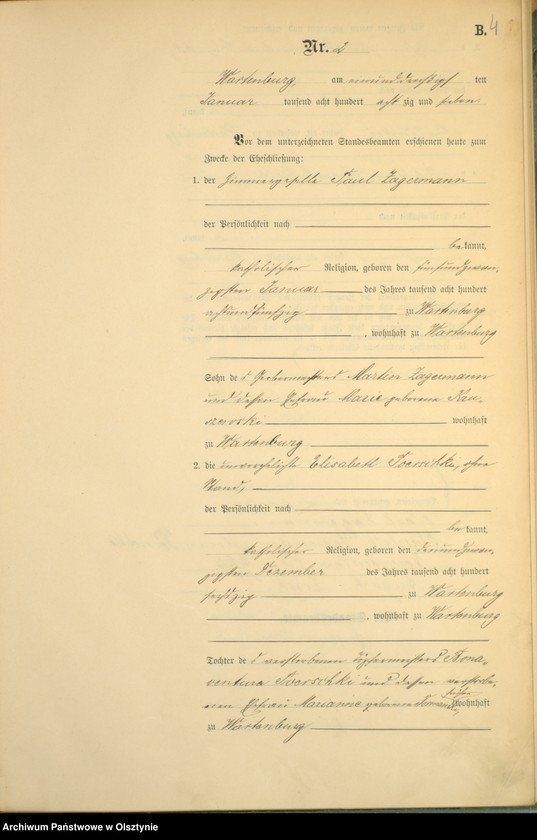 B. 4
Nr. 2
Wartenburg, am einunddreißigs ten
Januar tausend acht hundert acht zig und sieben
Vor dem unterzeichneten Standesbeamten erschienen heute zum
Zwecke der Eheschließung:
1. der Zimmergeselle Paul Zagermann
der Persönlichkeit nach
be kannt,
katholischer Religion, geboren den fünfundzwan-
zigsten Januar des Jahres tausend acht hundert
achtundfünfzig zu Wartenburg
, wohnhaft zu Wartenburg
Sohn de s Gerbermeisters Martin Zagermann
und dessen Ehefrau Marie geborene
wohnhaft
zu Wartenburg
2. die unverehelichte Elisabeth Poeroschki, ohne
Stand,
der Persönlichkeit nach
be kannt,
katholischer Religion, geboren den dreiundzwan-
zigsten Dezember des Jahres tausend acht hundert
sechszig zu Wartenburg
, wohnhaft zu Wartenburg
Tochter de s verstorbenen Töpfermeisters Bona-
ventura Poeroschki und dessen verstorbe-
nen Ehefrau Marianne geborene früher wohnhaft
zu Wartenburg
Archiwum Państwowe w Olsztynie